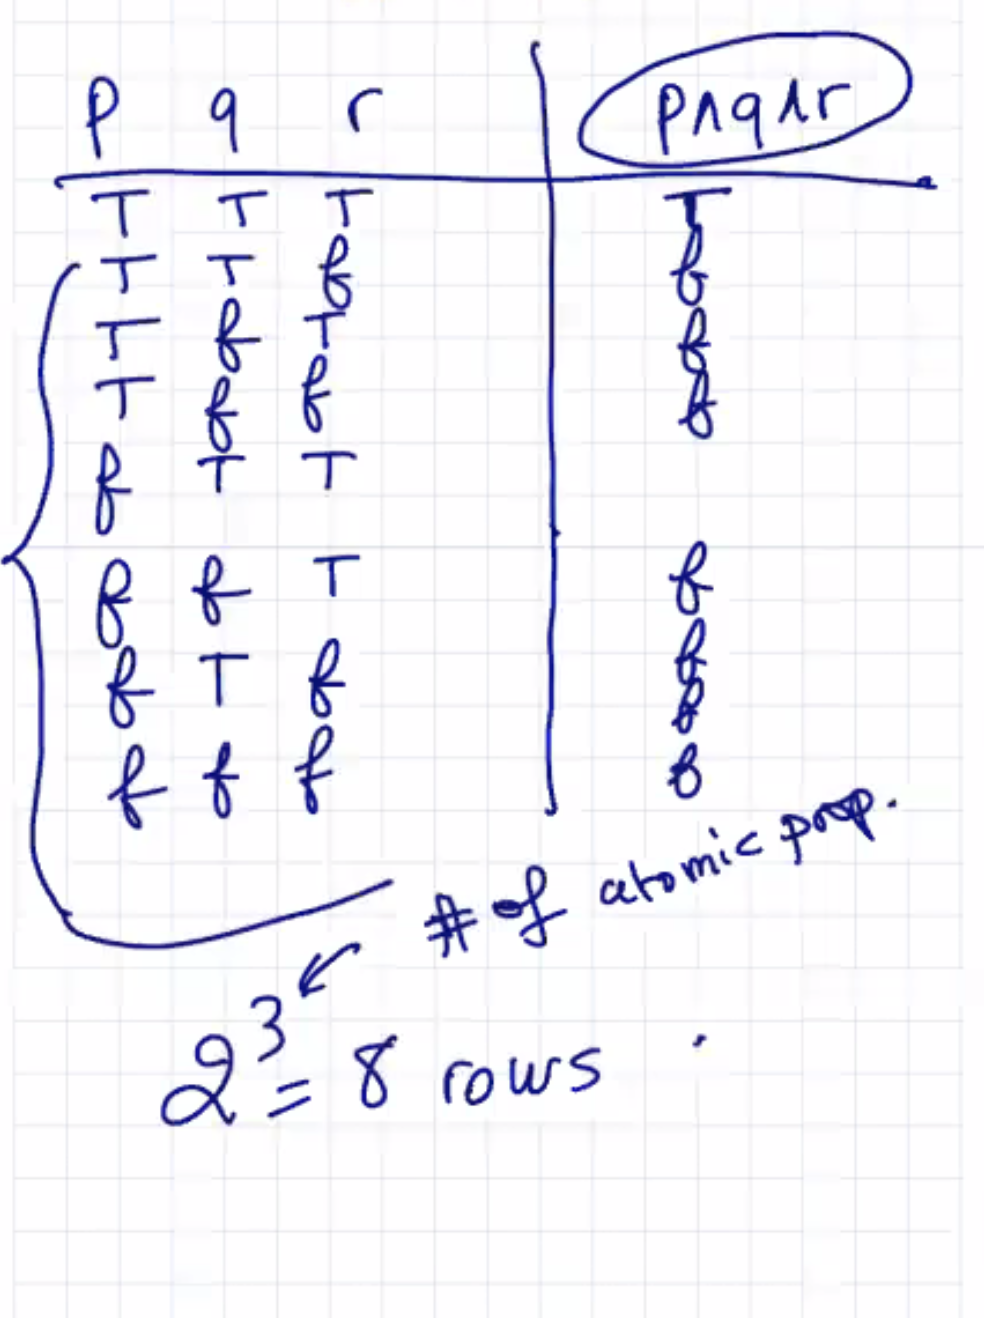 p q r p∧q∧r
T T T T
T T f f
T f T f
T f f f
f T T
f f T f
f T f f
f
f f f f
# of atomic prop.
2³ = 8 rows